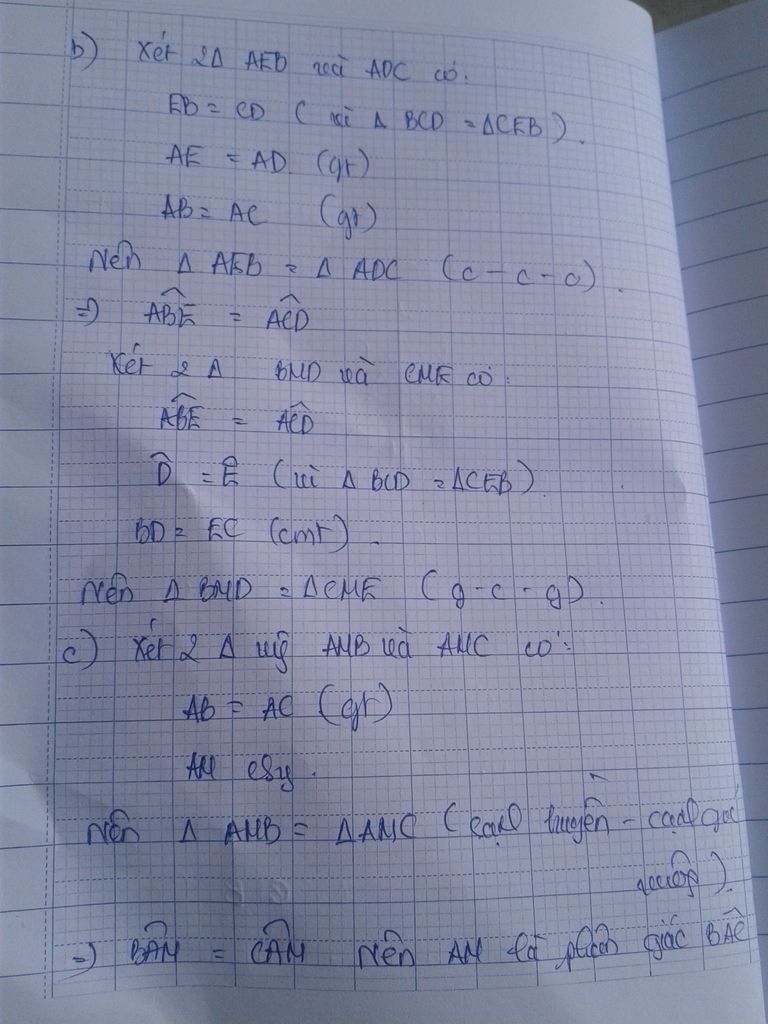 b) Xét 2Δ AEB và ADC có:
EB = CD ( vì Δ BCD = ΔCEB ).
AE = AD (gt)
AB = AC (gt)
Nên Δ AEB = Δ ADC (c - c - c).
=> ABE = ACD
Xét 2 Δ BMD và CME có:
ABE = ACD
D = E (vì Δ BCD = ΔCEB)
BD = EC (cmt).
Nên Δ BMD = ΔCME (g - c - g).
c) Xét 2 Δ vg AMB và AMC có:
AB = AC (gt)
AM
Nên Δ AMB = ΔAMC (cạnh huyền - cạnh góc
vuông).
=> BAM = CAM Nên AM là phân giác BAC